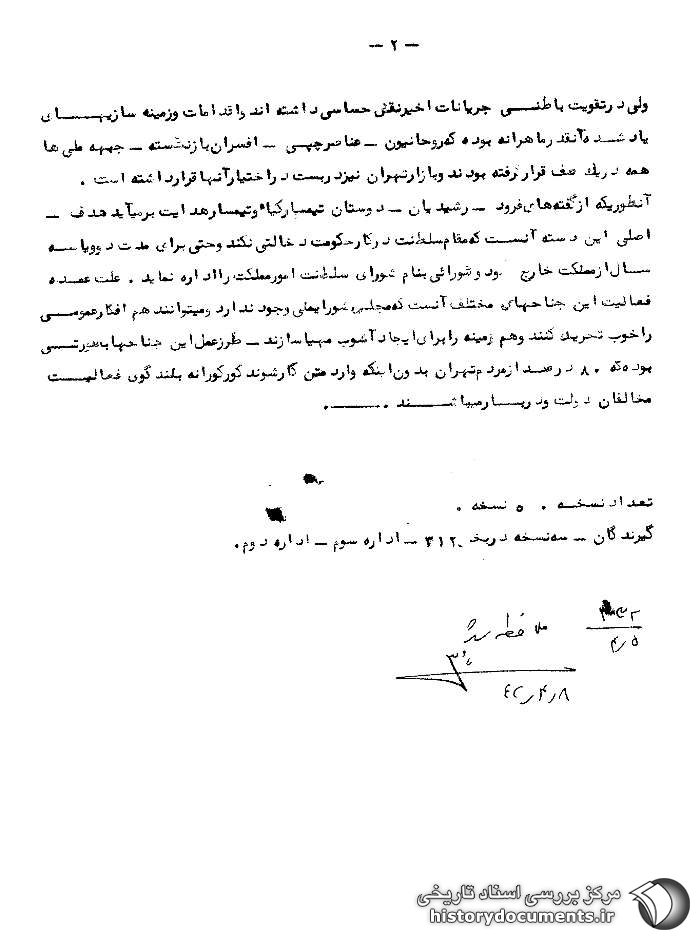 — ۲ —
ولی در تقویت باطنی جریانات اخیر نقش حساسی داشته اند و اقدامات و زمینه سازیهای
یاد شده آنقدر ماهرانه بوده که روحانیون — عناصر چپی — افسران بازنشسته — جبهه ملی ها
همه در یک صف قرار گرفته بودند و بازار تهران نیز دربست در اختیار آنها قرار داشته است .
آنطوریکه از گفته های فرود — رشیدیان — دوستان تیمسار کیا و تیمسار هدایت برمیآید هدف —
اصلی این دسته آنست که مقام سلطنت در کار حکومت دخالتی نکند وحتی برای مدت دو ویا سه
سال از مملکت خارج شود و شورائی بنام شورای سلطنت امور مملکت را اداره نماید . علت عمده
فعالیت این جناحهای مختلف آنست که مجلس شورایملی وجود ندارد و میتوانند هم افکار عمومی
را خوب تحریک کنند وهم زمینه را برای ایجاد آشوب مهیا سازند — طرز عمل این جناحها بصورتی
بوده که ۸۰ درصد از مردم تهران بدون اینکه وارد متن کار شوند کورکورانه بلند گوی فعالیت
مخالفان دولت و دربار میباشند .
تعداد نسخه . ۵ نسخه .
گیرندگان — سه نسخه در بخش ۳۱۲ — اداره سوم — اداره دوم .
ملاحظه شد
۴/۵
۴۲/۴/۸
مرکز بررسی اسناد تاریخی
historydocuments.ir